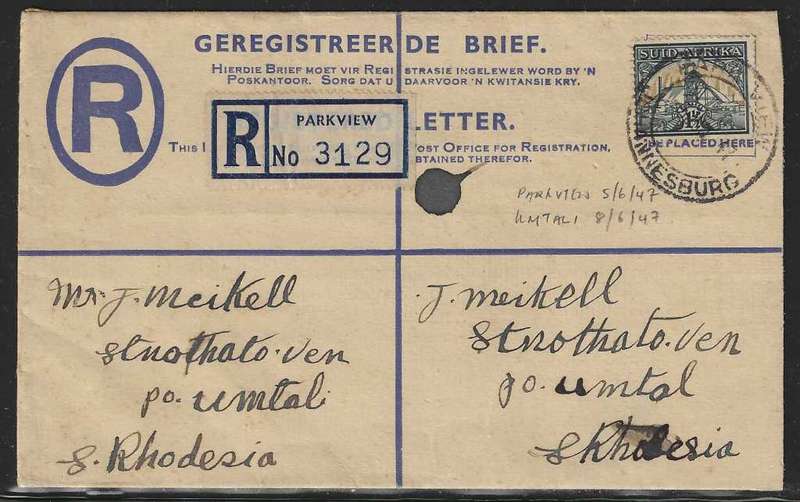 GEREGISTREERDE BRIEF.
HIERDIE BRIEF MOET VIR REGISTRASIE INGELEWER WORD BY 'N
POSKANTOOR. SORG DAT U DAARVOOR 'N KWITANSIE KRY.
R
SUID-AFRIKA
R PARKVIEW
No 3129
LETTER.
THIS OST OFFICE FOR REGISTRATION,
BTAINED THEREFOR.
BE PLACED HERE
NNESBURG
PARKVIEW 5/6/47
UMTALI 8/6/47
Mr J. Meikell
Stnothato. Ven
po. umtali
S. Rhodesia
J. meikell
Stnothato. Ven
po. umtal
S Rhodesia